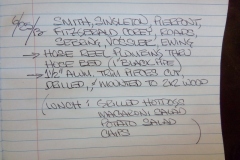 SMITH, SINGLETON, PIERPONT,
FITZGERALD COREY, ROADS,
SEBRING, VOCQUE, EWING
→ HOSE REEL PLUMBING THRU
HOSE BED (1" BLACK PIPE)
→ 1½" ALUM. TRIM PIECES CUT,
DRILLED, & MOUNTED TO 2X2 WOOD
(LUNCH: GRILLED HOTDOGS
MACARONI SALAD
POTATO SALAD
CHIPS)